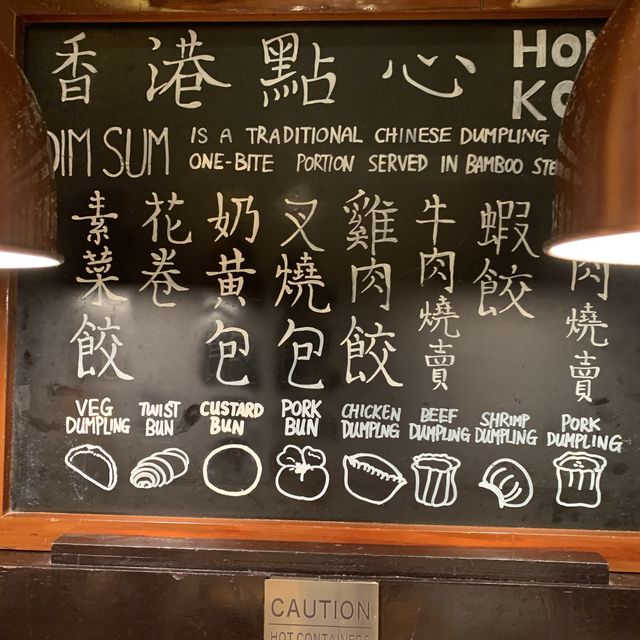 香港點心
HON
KO
DIM SUM
IS A TRADITIONAL CHINESE DUMPLING
ONE-BITE PORTION SERVED IN BAMBOO STE
素菜餃
花卷
奶黃包
叉燒包
雞肉餃
牛肉燒賣
蝦餃
肉燒賣
VEG
DUMPLING
TWIST
BUN
CUSTARD
BUN
PORK
BUN
CHICKEN
DUMPLNG
BEEF
DUMPLING
SHRIMP
DUMPLING
PORK
DUMPLING
CAUTION
HOT CONTAINERS